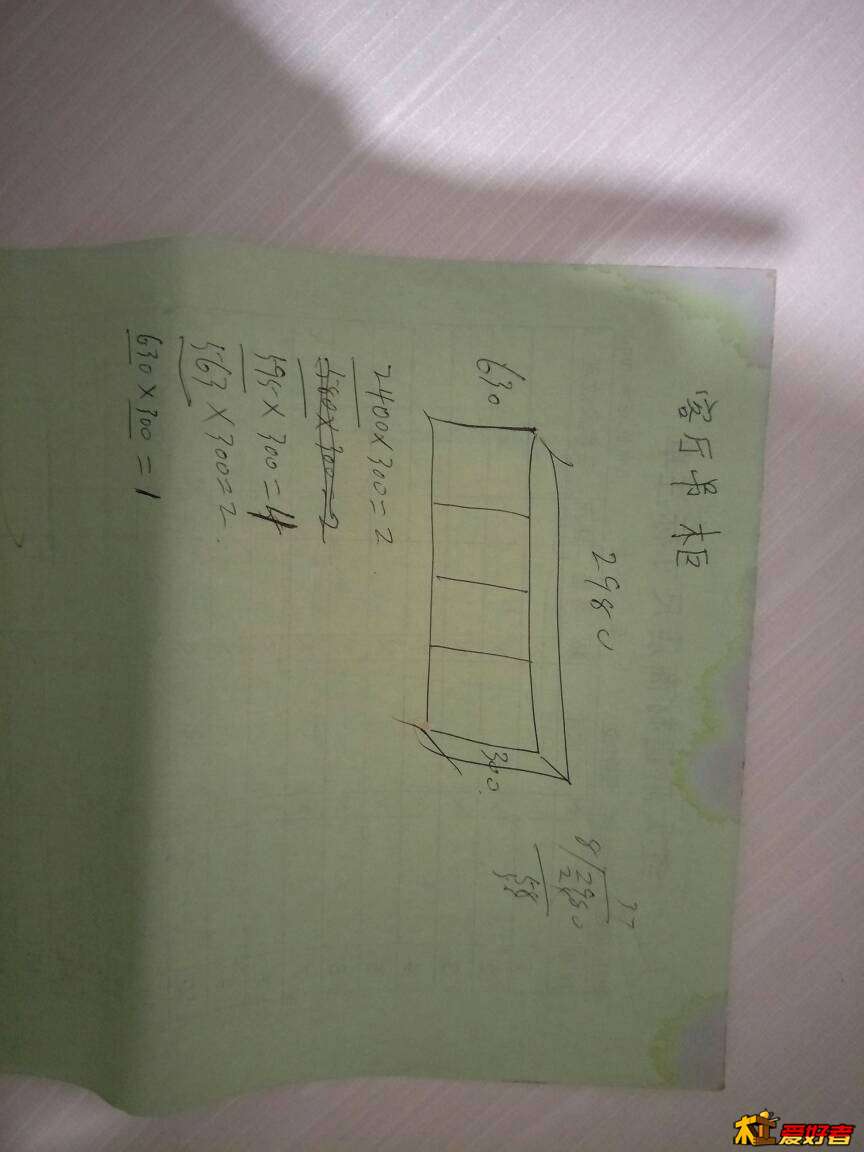 客厅吊柜
2980
630
300
2400×300=2
480×300=2
595×300=4
563×300=2
630×300=1
37
8/2980
木工爱好者